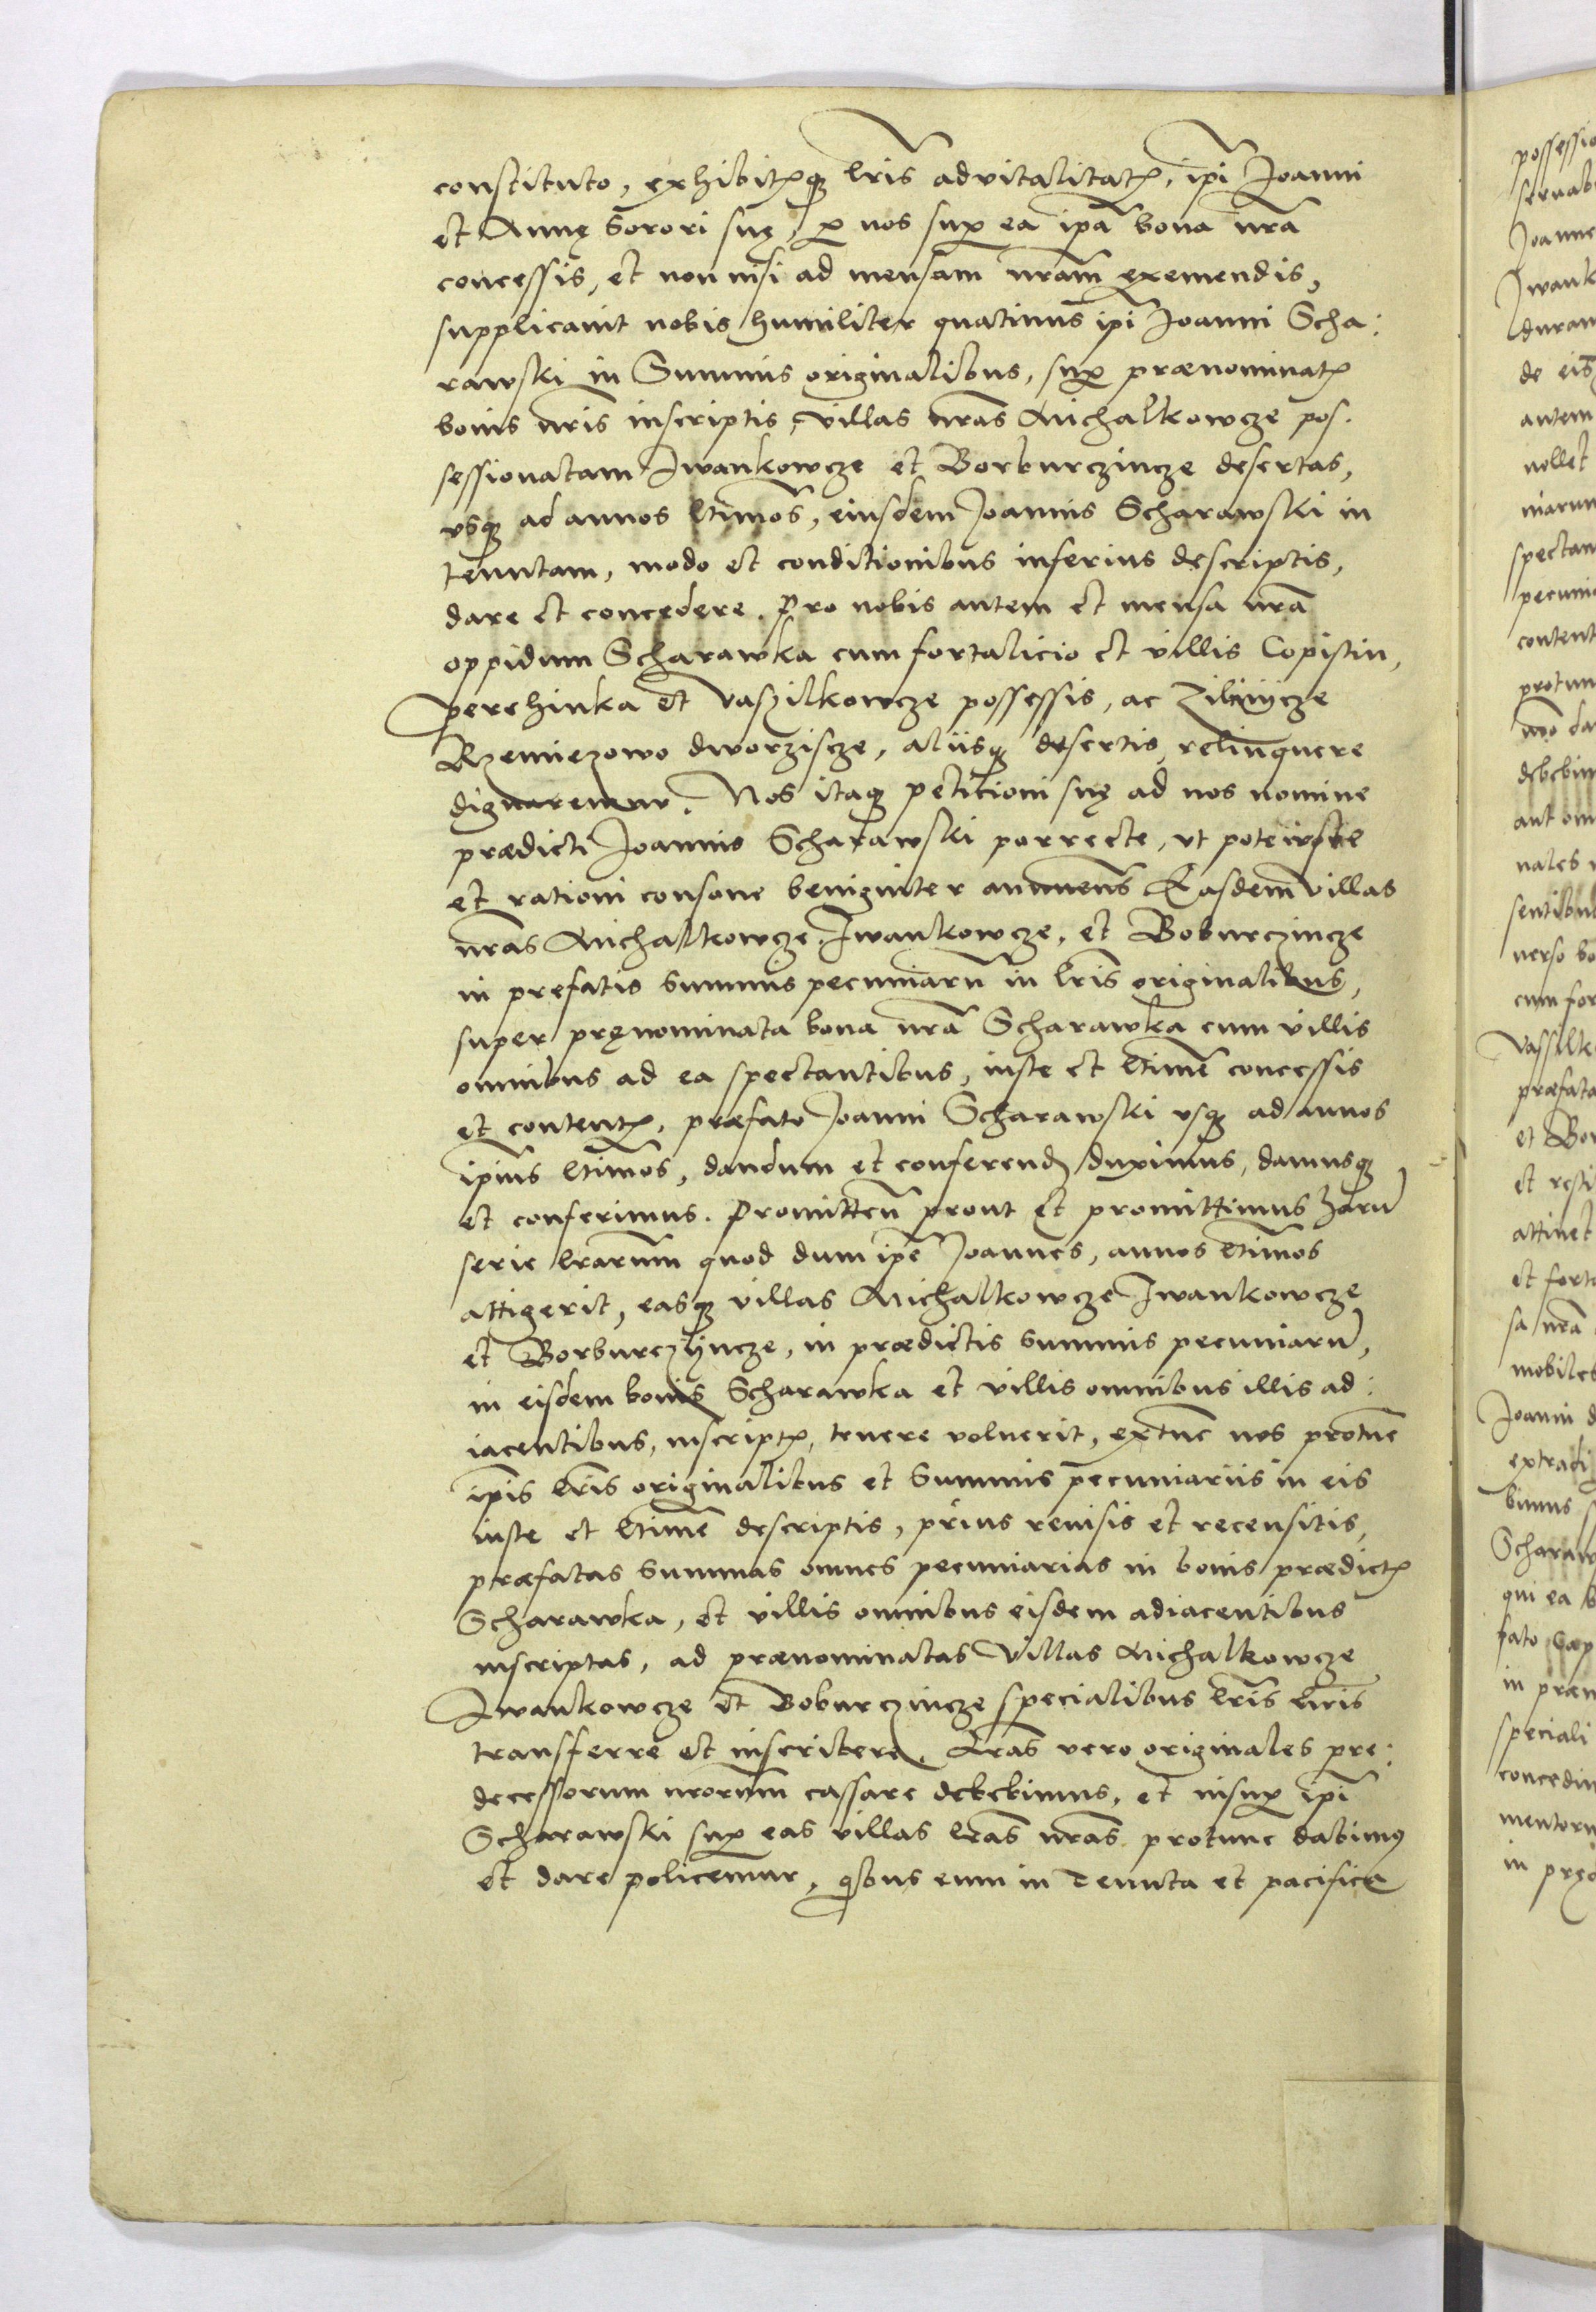 constituto, exhibitisq lris advitalitatis, ipi Joanni
et Annę Sorori suę, p nos sup ea ipa bona nra
concessis, et non nisi ad mensam nram exemendis,
supplicauit nobis humiliter quatinus ipi Joanni Scha:
rawski in Summis originalibus, sup prænominatis
bonis nris inscriptis, villas nras Michalkowcze pos.
sessionatam Iwankowcze et Borburczincze desertas,
vsq ad annos ltimos, eiusdem Joannis Scharawski in
tenutam, modo et conditionibus inferius descriptis,
dare et concedere. Pro nobis autem et mensa nra
oppidum Scharawka cum fortalicio et villis Copistin,
perehinka et Vaszilkowcze possessis, ac
Rzemiezowo dworziscze, aliisq desertis, relinquere
dignaremur. Nos itaq petitioni suę ad nos nomine
prædicti Joannis Scharawski porrecte, vt pote iuste
et rationi consone benigniter annuens Easdem villas
nras Michalkowcze, Iwankowcze, et Boburczincze
in prefatis summis pecuniaru in lris originalibus,
super pręnominata bona nra Scharawka cum villis
omnibus ad ea spectantibus, iuste et ltime concessis
et contentis, præfato Joanni Scharawski vsq ad annos
ipius ltimos, dandum et conferend duximus, damusq
et conferimus. Promitten prout et promittimus haru
serie lrarum quod dum ipe Joannes, annos ltimos
attigerit, easq villas Michalkowcze Iwankowcze
et Borburczÿncze, in prædictis summis pecuniaru,
in eisdem bonis Scharawka et villis omnibus illis ad:
iacentibus, inscriptis, tenere voluerit, extunc nos protunc
ipis lris originalibus et Summis pecuniariis in eis
iuste et ltime descriptis, prius reuisis et recensitis,
præfatas summas omnes pecuniarias in bonis prædictis
Scharawka, et villis omnibus eisdem adiacentibus
inscriptas, ad prænominatas Villas Michalkowcze
Iwankowcze et Boburczincze specialibus lris nris
transferre et inscribere. Lras vero originales pre:
decessorum nrorum cassare debebimus, et insup ipi
Scharawski sup eas villas lras nras protunc dabimus
et dare policemur, qibus eum in Tenuta et pacifica